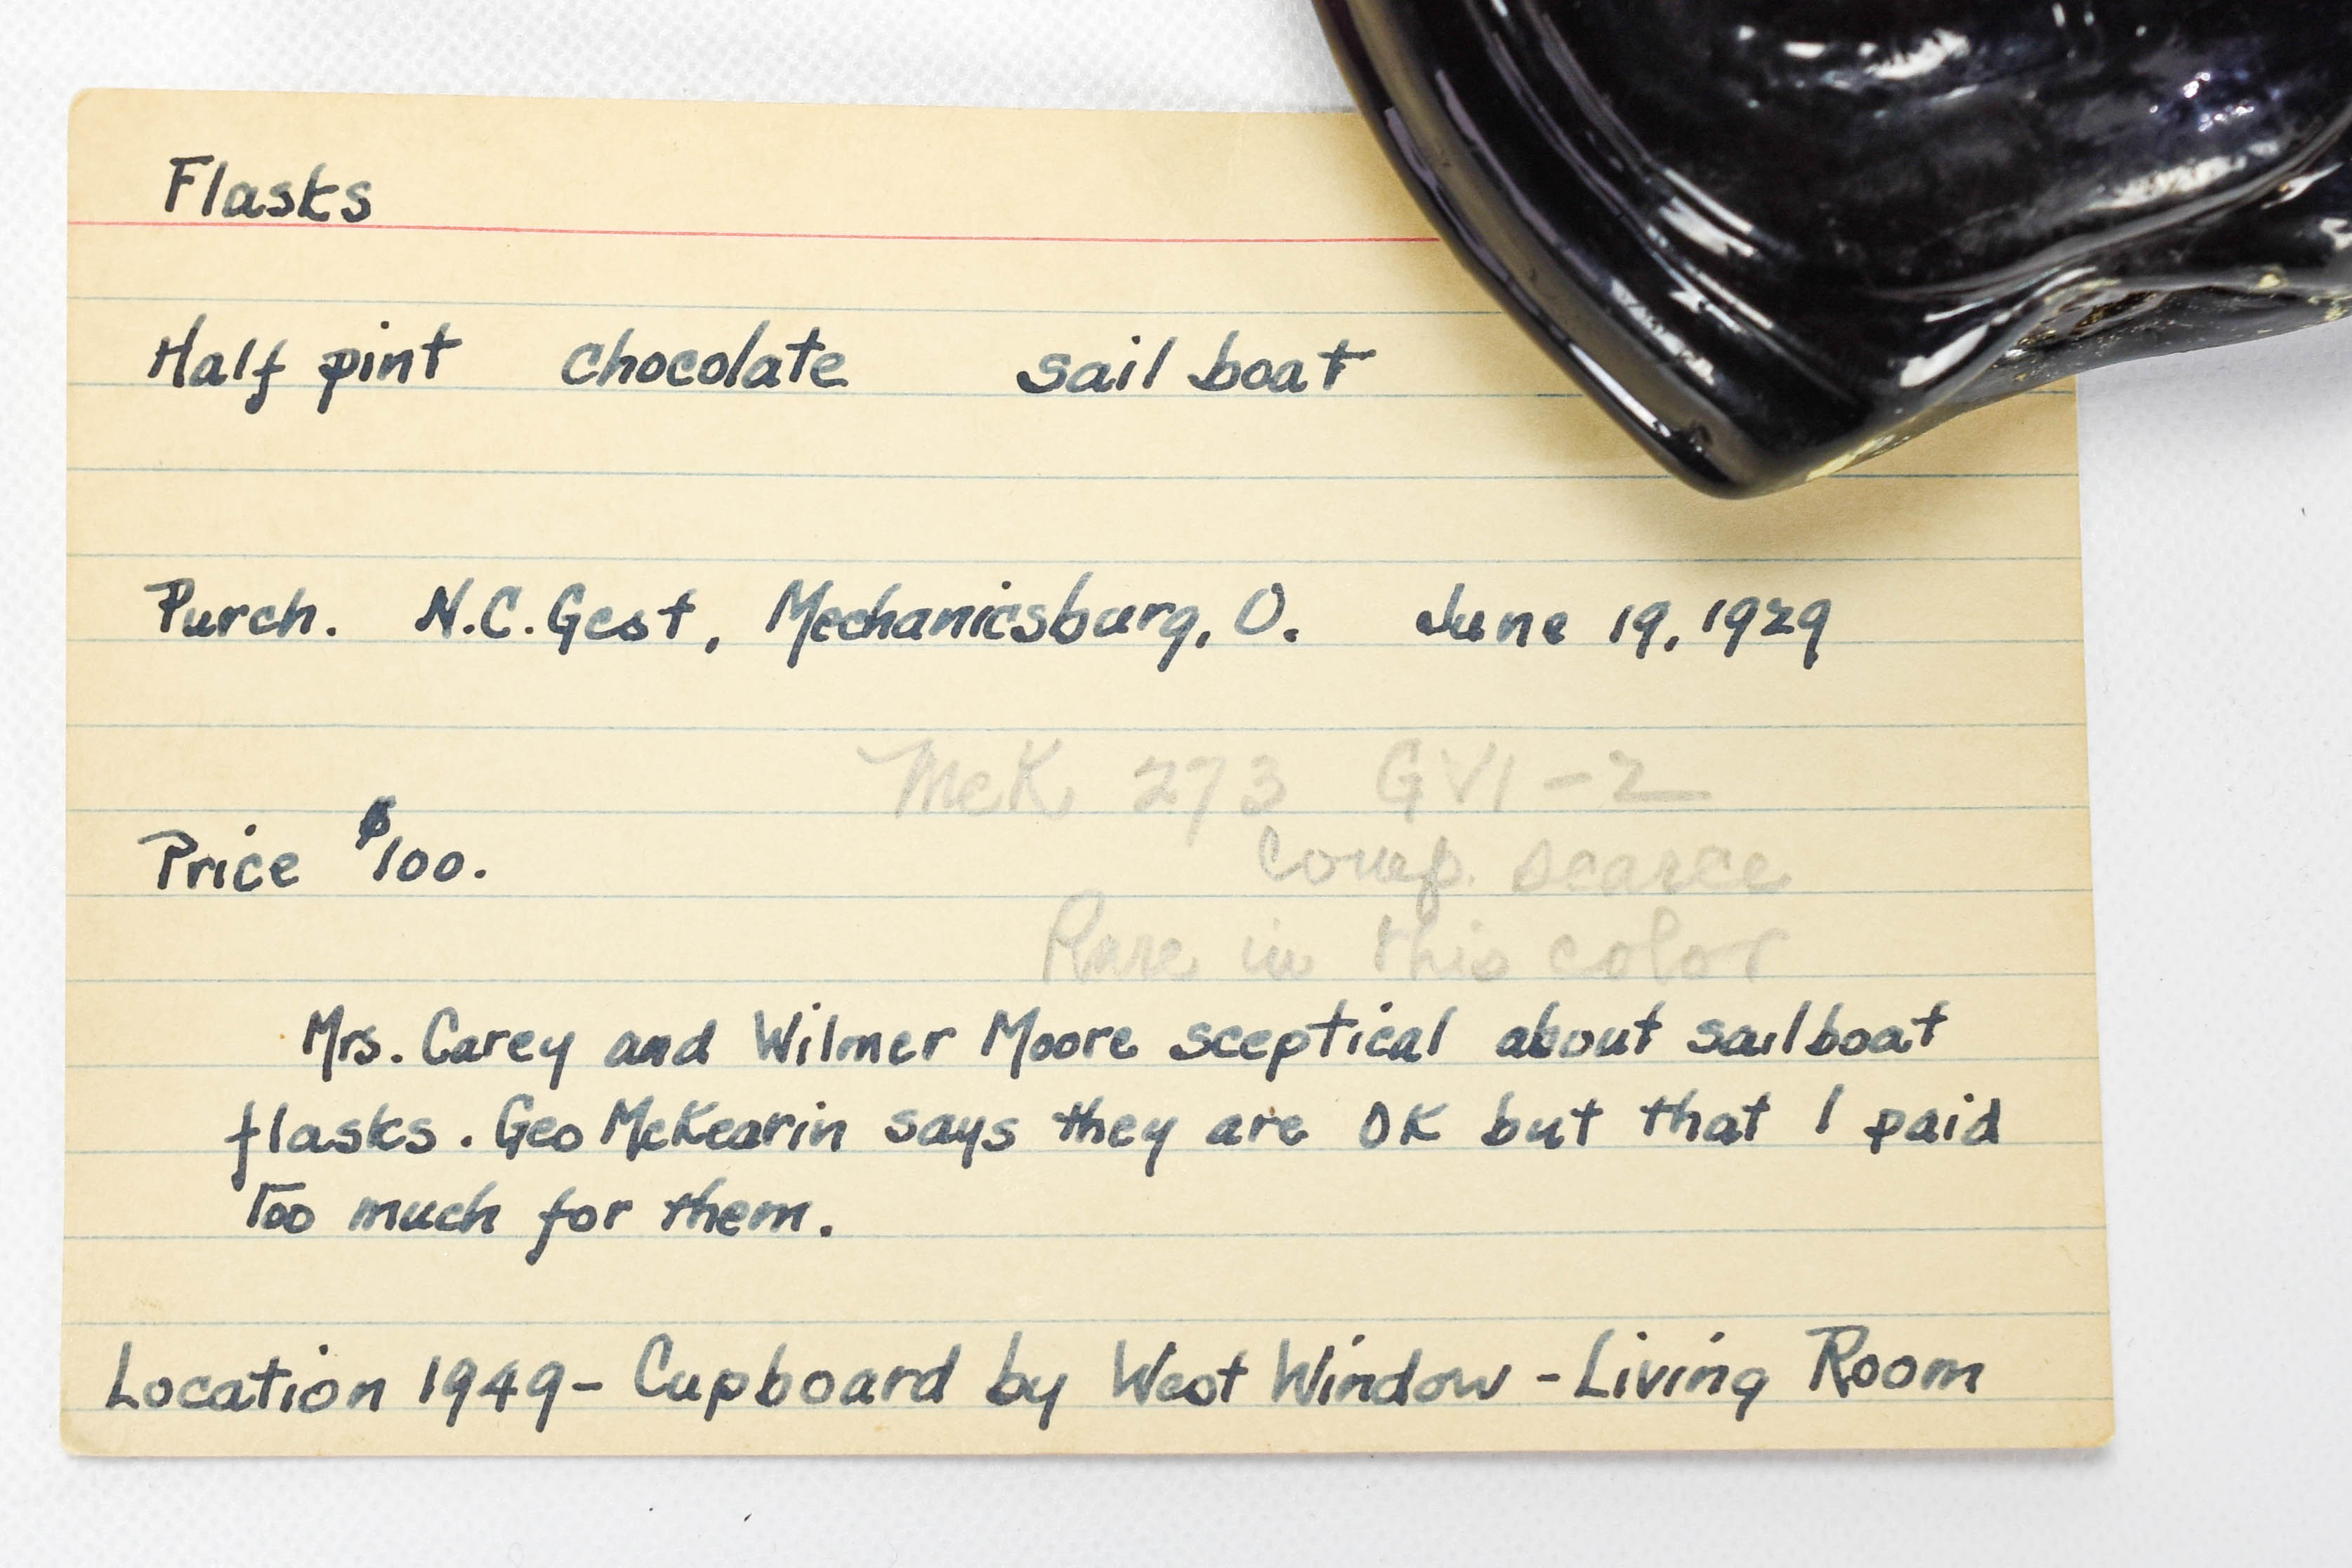 Flasks
Half pint chocolate sail boat
Purch. N.C. Gest, Mechanicsburg, O. June 19, 1929
McK 273 GVI-2
Price $100.
Comp. scarce
Rare in this color
Mrs. Carey and Wilmer Moore sceptical about sailboat
flasks. Geo McKearin says they are OK but that I paid
Too much for them.
Location 1949 - Cupboard by West Window - Living Room